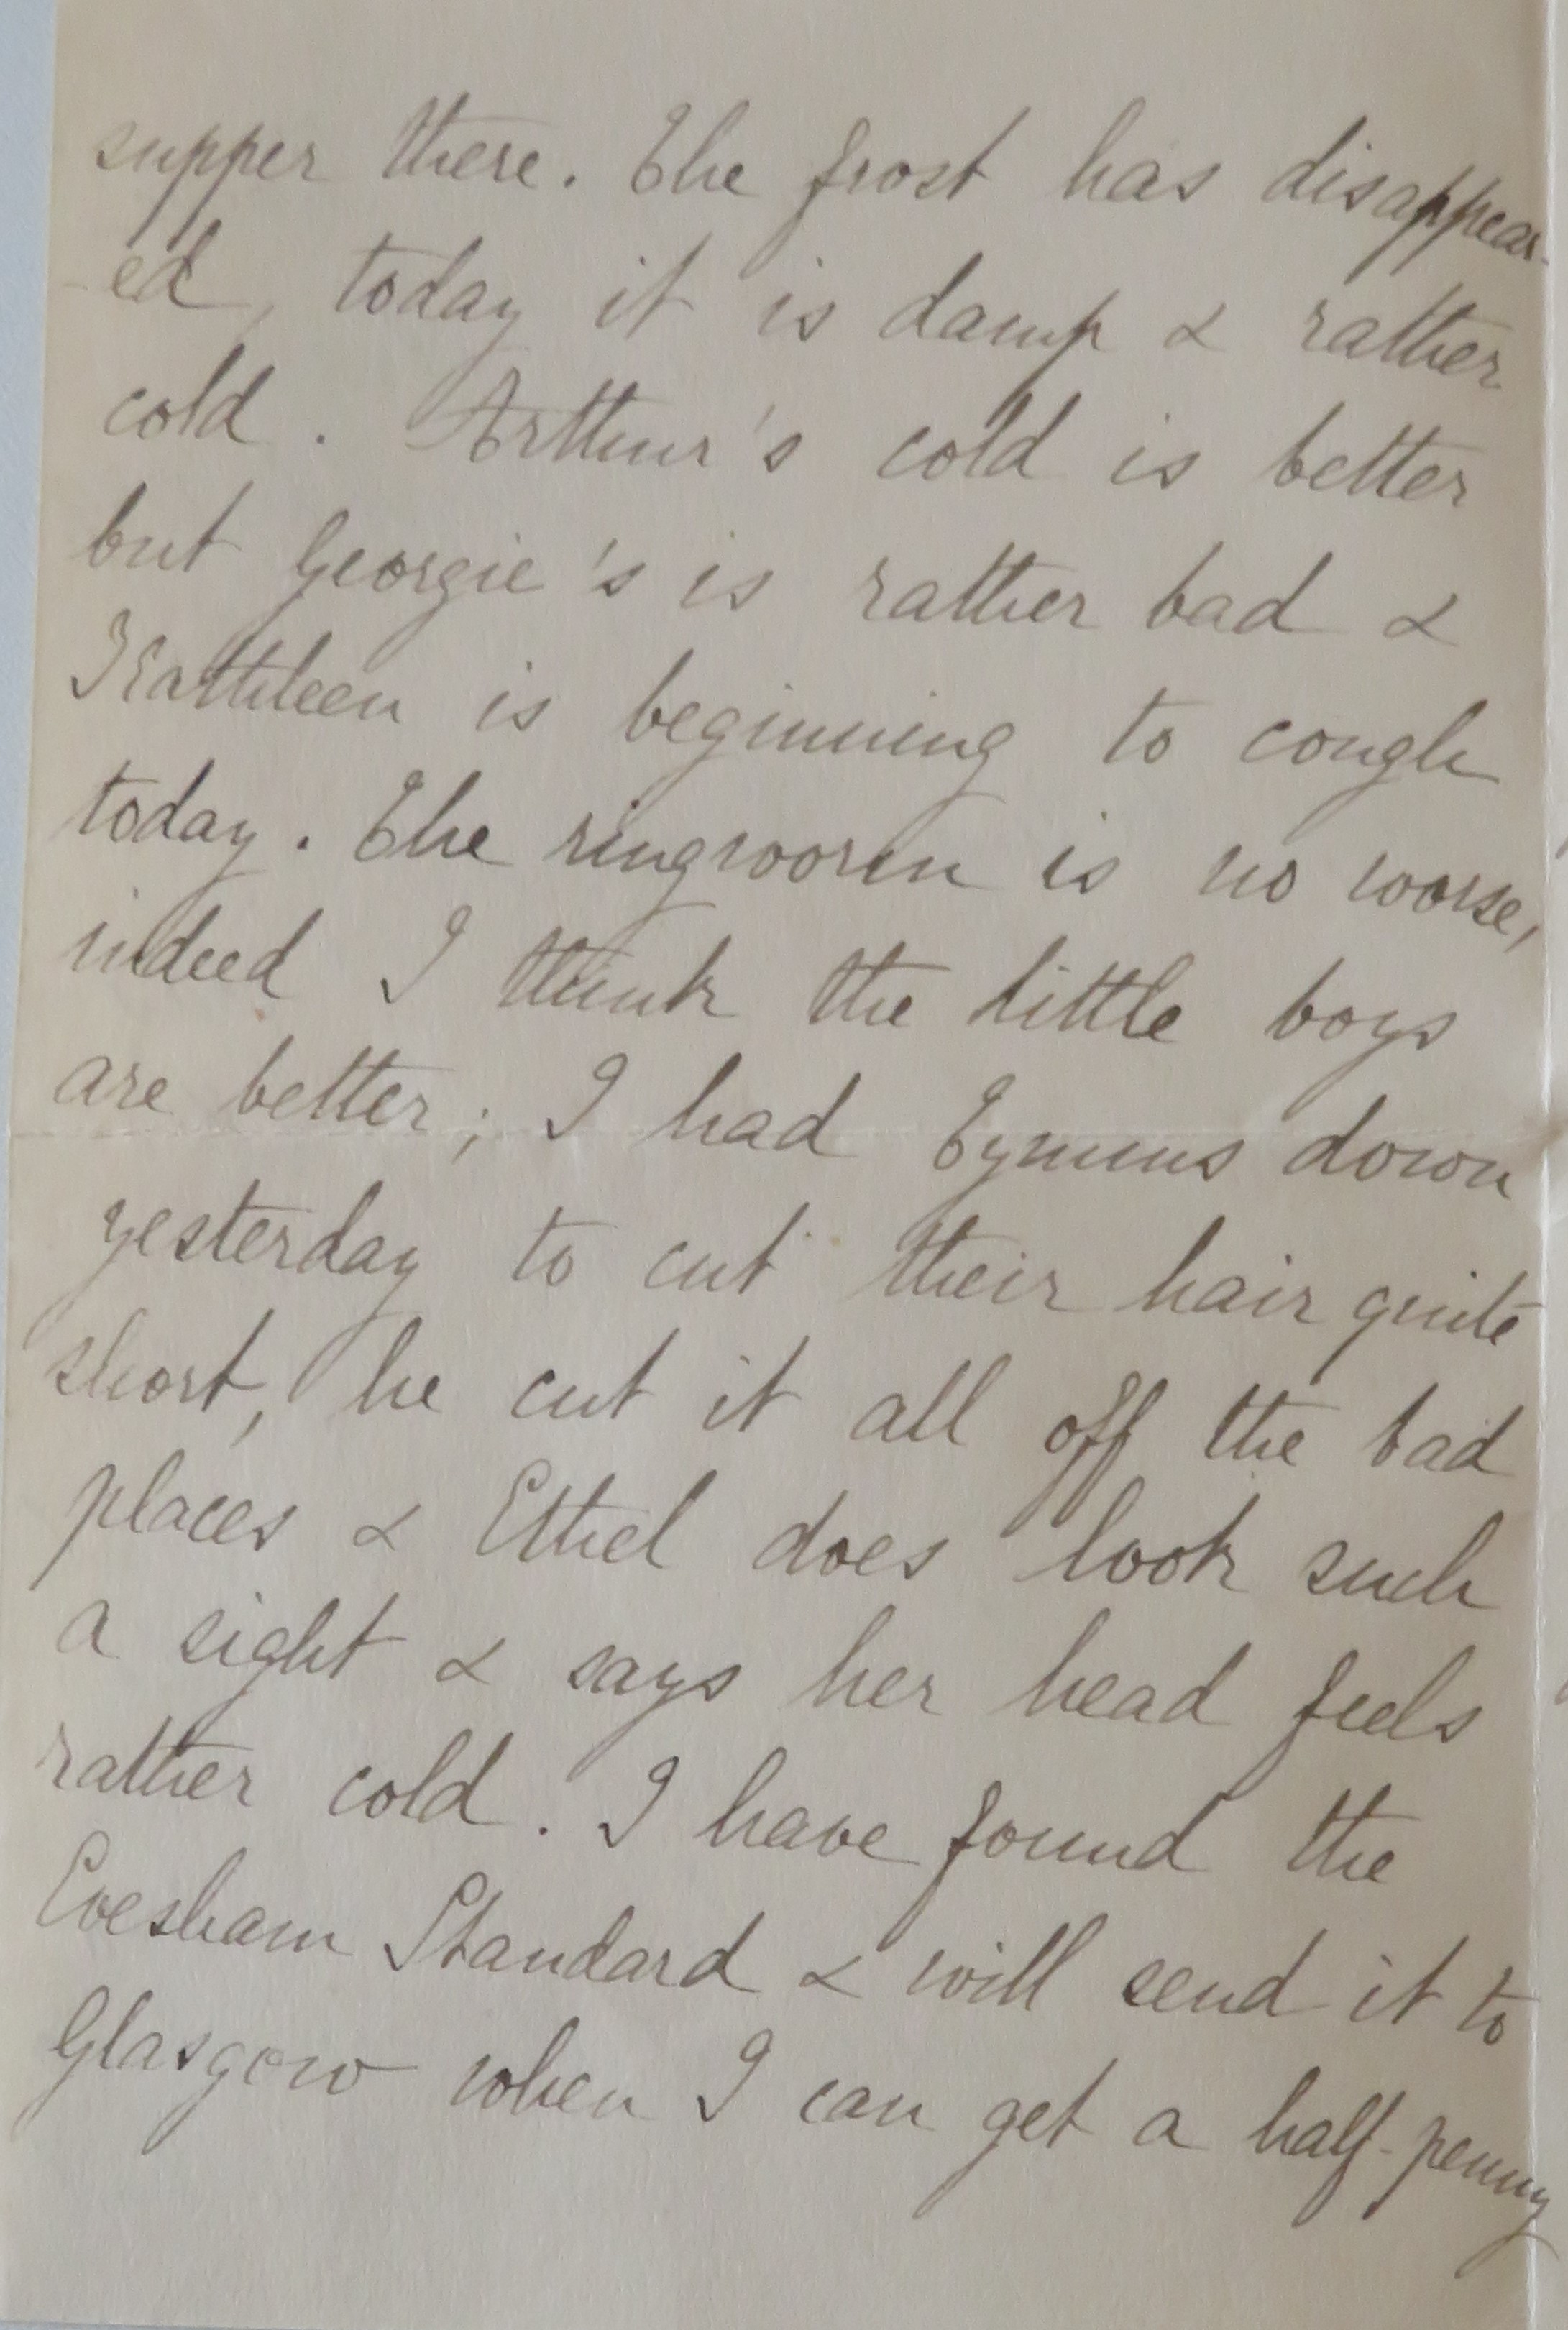 supper there. The frost has disappear-
-ed, today it is damp & rather
cold. Arthur's cold is better
but Georgie's is rather bad &
Kathleen is beginning to cough
today. The ringworm is no worse,
indeed I think the little boys
are better; I had down
yesterday to cut their hair quite
short, he cut it all off the bad
places & Ethel does look such
a sight & says her head feels
rather cold. I have found the
Evesham Standard & will send it to
Glasgow when I can get a half-penny